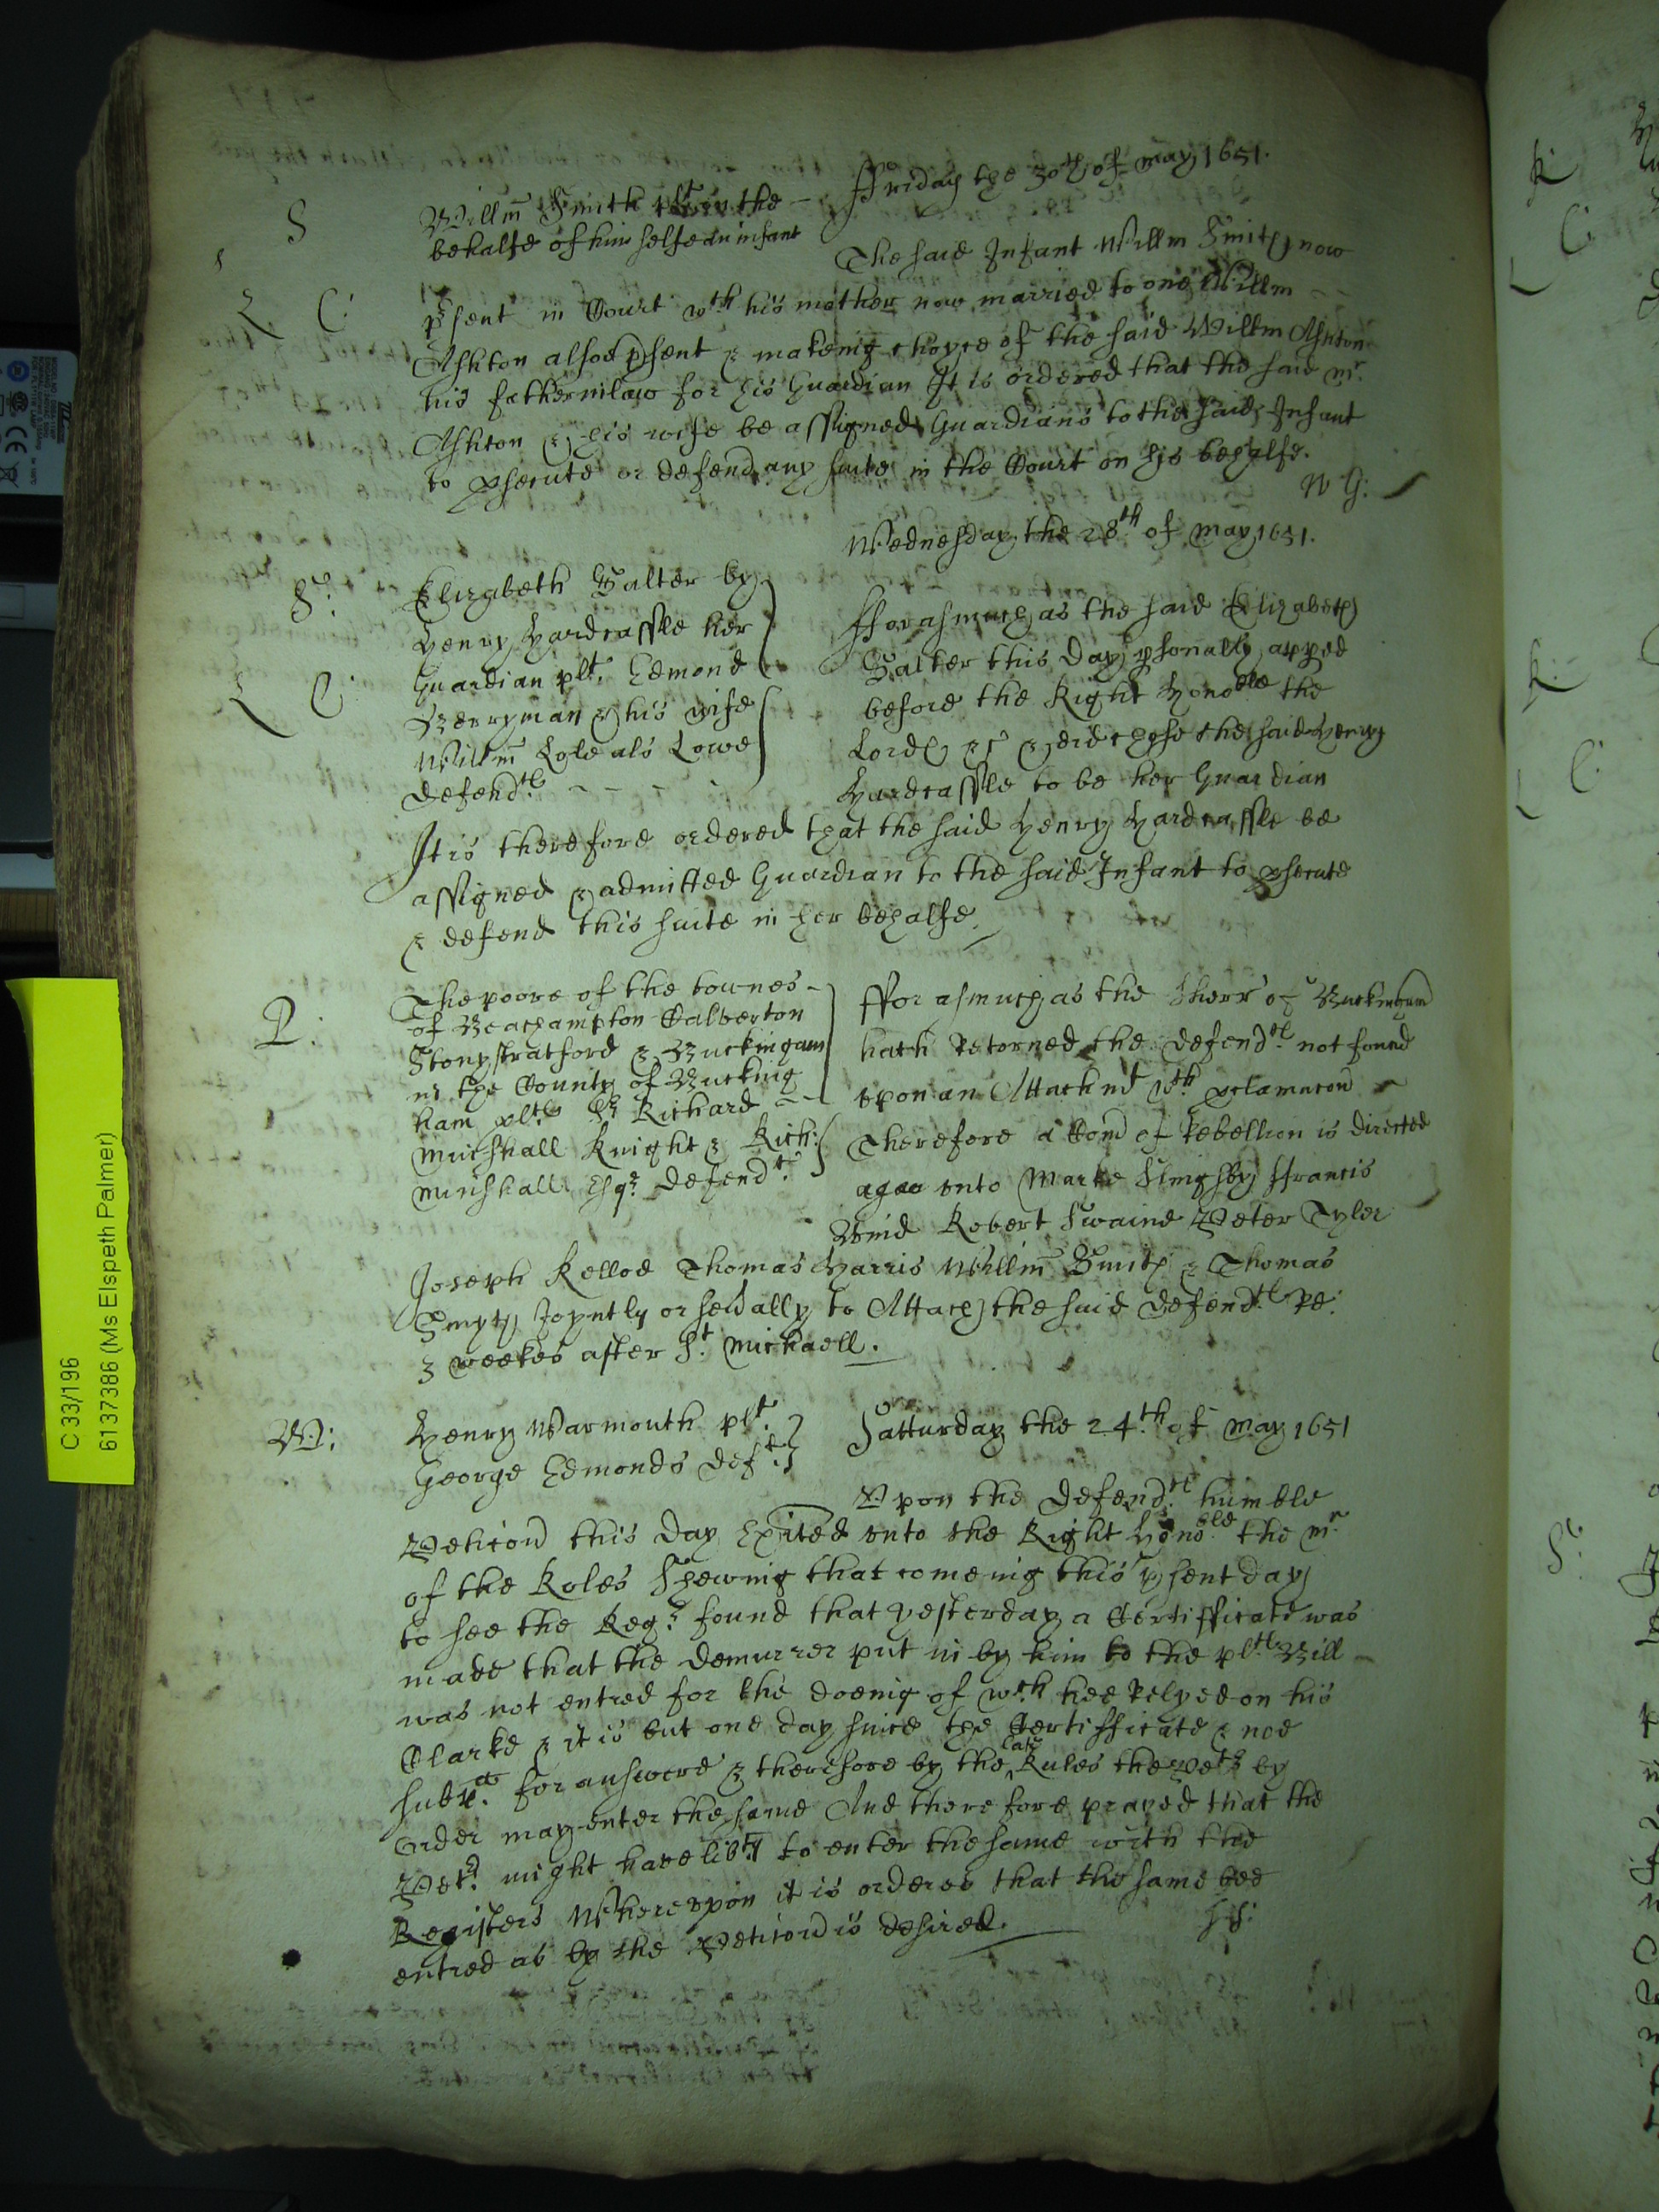 ffriday the 30th of may 1651.
S
Willm Smith plt in the
behalfe of him selfe an infant
The said Infant Willm Smith now
L C:
psent in Court wth his mother now married to one Willm
Ashton alsoe psent & makeing choyce of the said Willm Ashton
his fatherinlaw for his Guardian It is ordered that the said mr.
Ashton & his wife be assigned Guardians to the said Infant
to psecute or defend any suite in the Court on his behalfe.
W G:
Wednesday the 28th of may 1651.
S:
Elizabeth Salter by
Henry Hardcassle her
Guardian plt. Edmond
Berryman & his wife
Willm Lole als Lowe
defendts
L C:
fforasmuch as the said Elizabeth
Salter this day psonally apped
before the Right Honoble the
Lords &c & did chose the said Henry
Hardcassle to be her Guardian
It is therefore ordered that the said Henry Hardcassle be
assigned & admitted Guardian to the said Infant to psecute
& defend this suite in her behalfe.
P:
The poore of the townes
of Beachampton Calverton
Stonystratford & Buckingam
in the County of Bucking
ham plts Sr Richard
minshall Knight & Rich:
minshall Esqr. defendts
fforasmuch as the Sherr of Buckingam
hath Retorned the defendts not found
upon an Attachmt wth pclamacon
Therefore a Com of Rebellion is directed
unto Marke Slingsby ffrancis
Robert Swaine Peter Tyler
Joseph Kelloe Thomas Harris Willm Smith & Thomas
Empty Joyntly or sevally to Attach the said defendts Re:
3 weekes after St. michaell.
W:
Henry Warmouth plt.
George Edmonds deft.
Satturday the 24th of may 1651
Upon the defendts humble
Peticon this day Exited unto the Right Honoble the mr.
of the Roles Shewing that comeing this psent day
to see the Regr. found that yesterday a Certifficate was
made that the demurrer put in by him to the plts Bill
was not entred for the doeing of wch hee Relyed on his
Clarke & it is but one day since the Certifficate & noe
subpa. for answere & therefore by the late Rules the Petr by
order may enter the same And therefore prayed that the
Petr. might have libty to enter the same with the
Registers Whereupon it is ordered that the same bee
entred as by the Peticon is desired.
C 33/196
6137386 (Ms Elspeth Palmer)